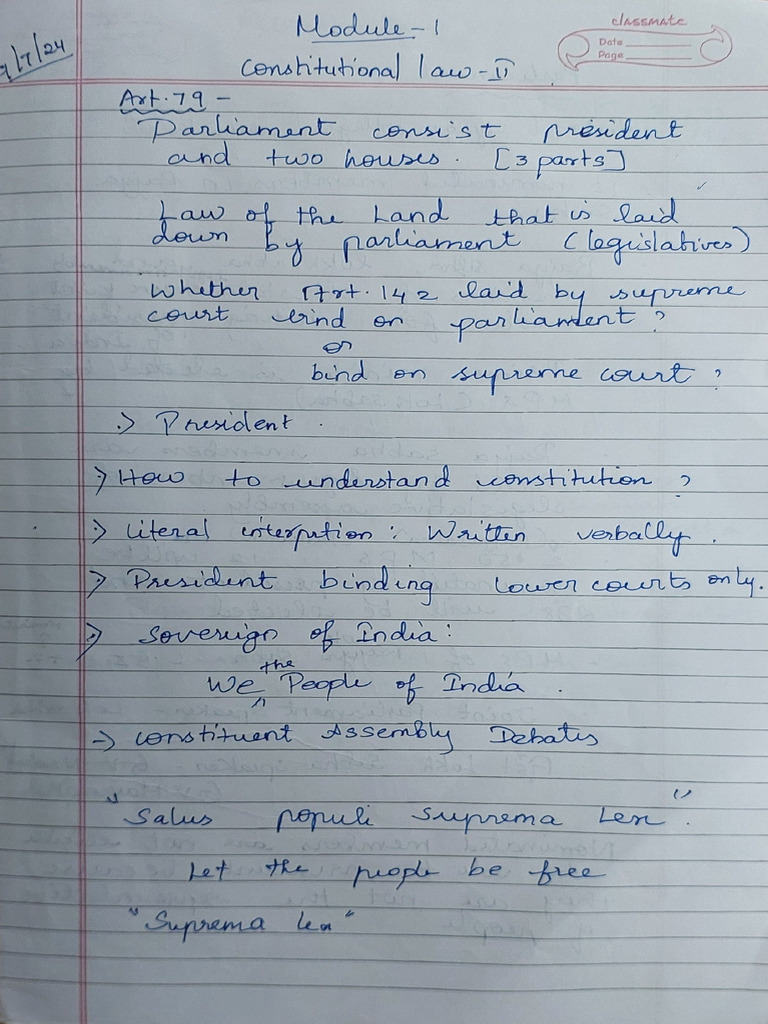 Module - 1
classmate
Date
Page
/7/24
Constitutional law - II
Art. 79 -
Parliament consist president
and two houses. [3 parts]
Law of the Land that is laid
down by parliament (legislatives)
Whether Art. 142 laid by supreme
court bind on parliament?
or
bind on supreme court?
:> President.
> How to understand constitution?
> Literal interpution: Written verbally.
> President binding lower courts only.
> Sovereign of India:
We the People of India.
-> Constituent Assembly Debates
"Salus populi suprema Lex".
Let the people be free
"Suprema Lex"